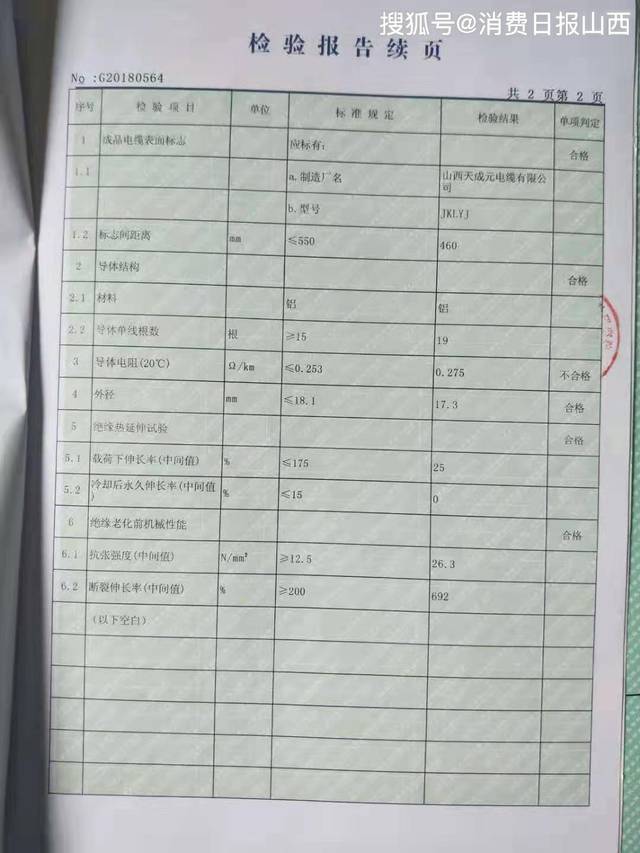 搜狐号@消费日报山西
检验报告续页
No :G20180564
共 2 页第 2 页
序号 检 验 项 目 单位 标 准 规 定 检验结果 单项判定
1 成品电缆表面标志 应标有: 合格
1.1 a.制造厂名 山西天成元电缆有限公
司
b.型号 JKLYJ
1.2 标志间距离 mm ≤550 460
2 导体结构 合格
2.1 材料 铝 铝
2.2 导体单线根数 根 ≥15 19
3 导体电阻(20℃) Ω/km ≤0.253 0.275 不合格
4 外径 mm ≤18.1 17.3 合格
5 绝缘热延伸试验 合格
5.1 载荷下伸长率(中间值) % ≤175 25
5.2 冷却后永久伸长率(中间值
) % ≤15 0
6 绝缘老化前机械性能 合格
6.1 抗张强度(中间值) N/mm² ≥12.5 26.3
6.2 断裂伸长率(中间值) % ≥200 692
(以下空白)